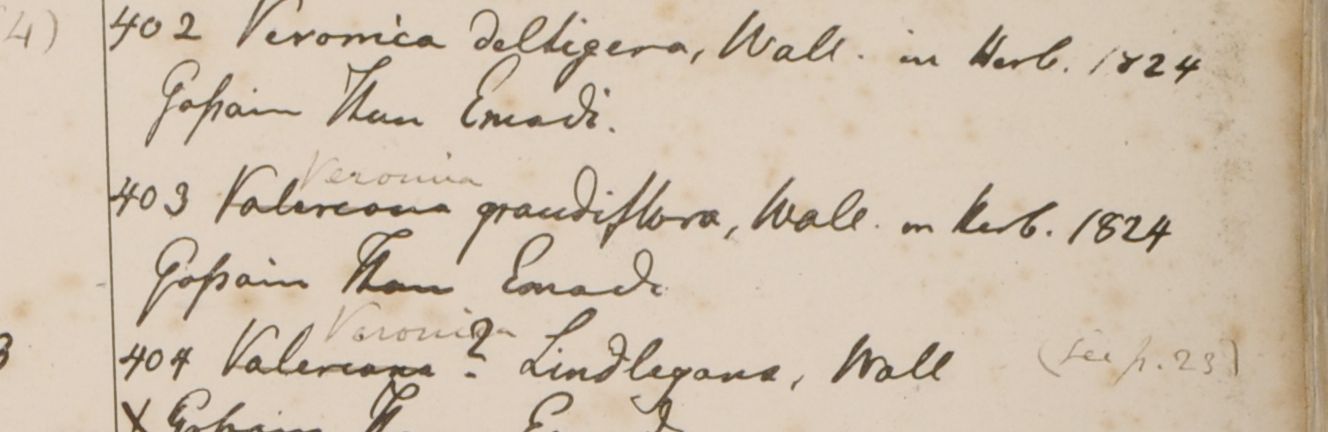 4)
402 Veronica deltigera, Wall. in Herb. 1824
Gossain Than Emodi.
Veronica
403 Valereana grandiflora, Wall. in Herb. 1824
Gossain Than Emodi
Veronica
3
404 Valereana? Lindleyana, Wall (see p. 23)
X Gossain